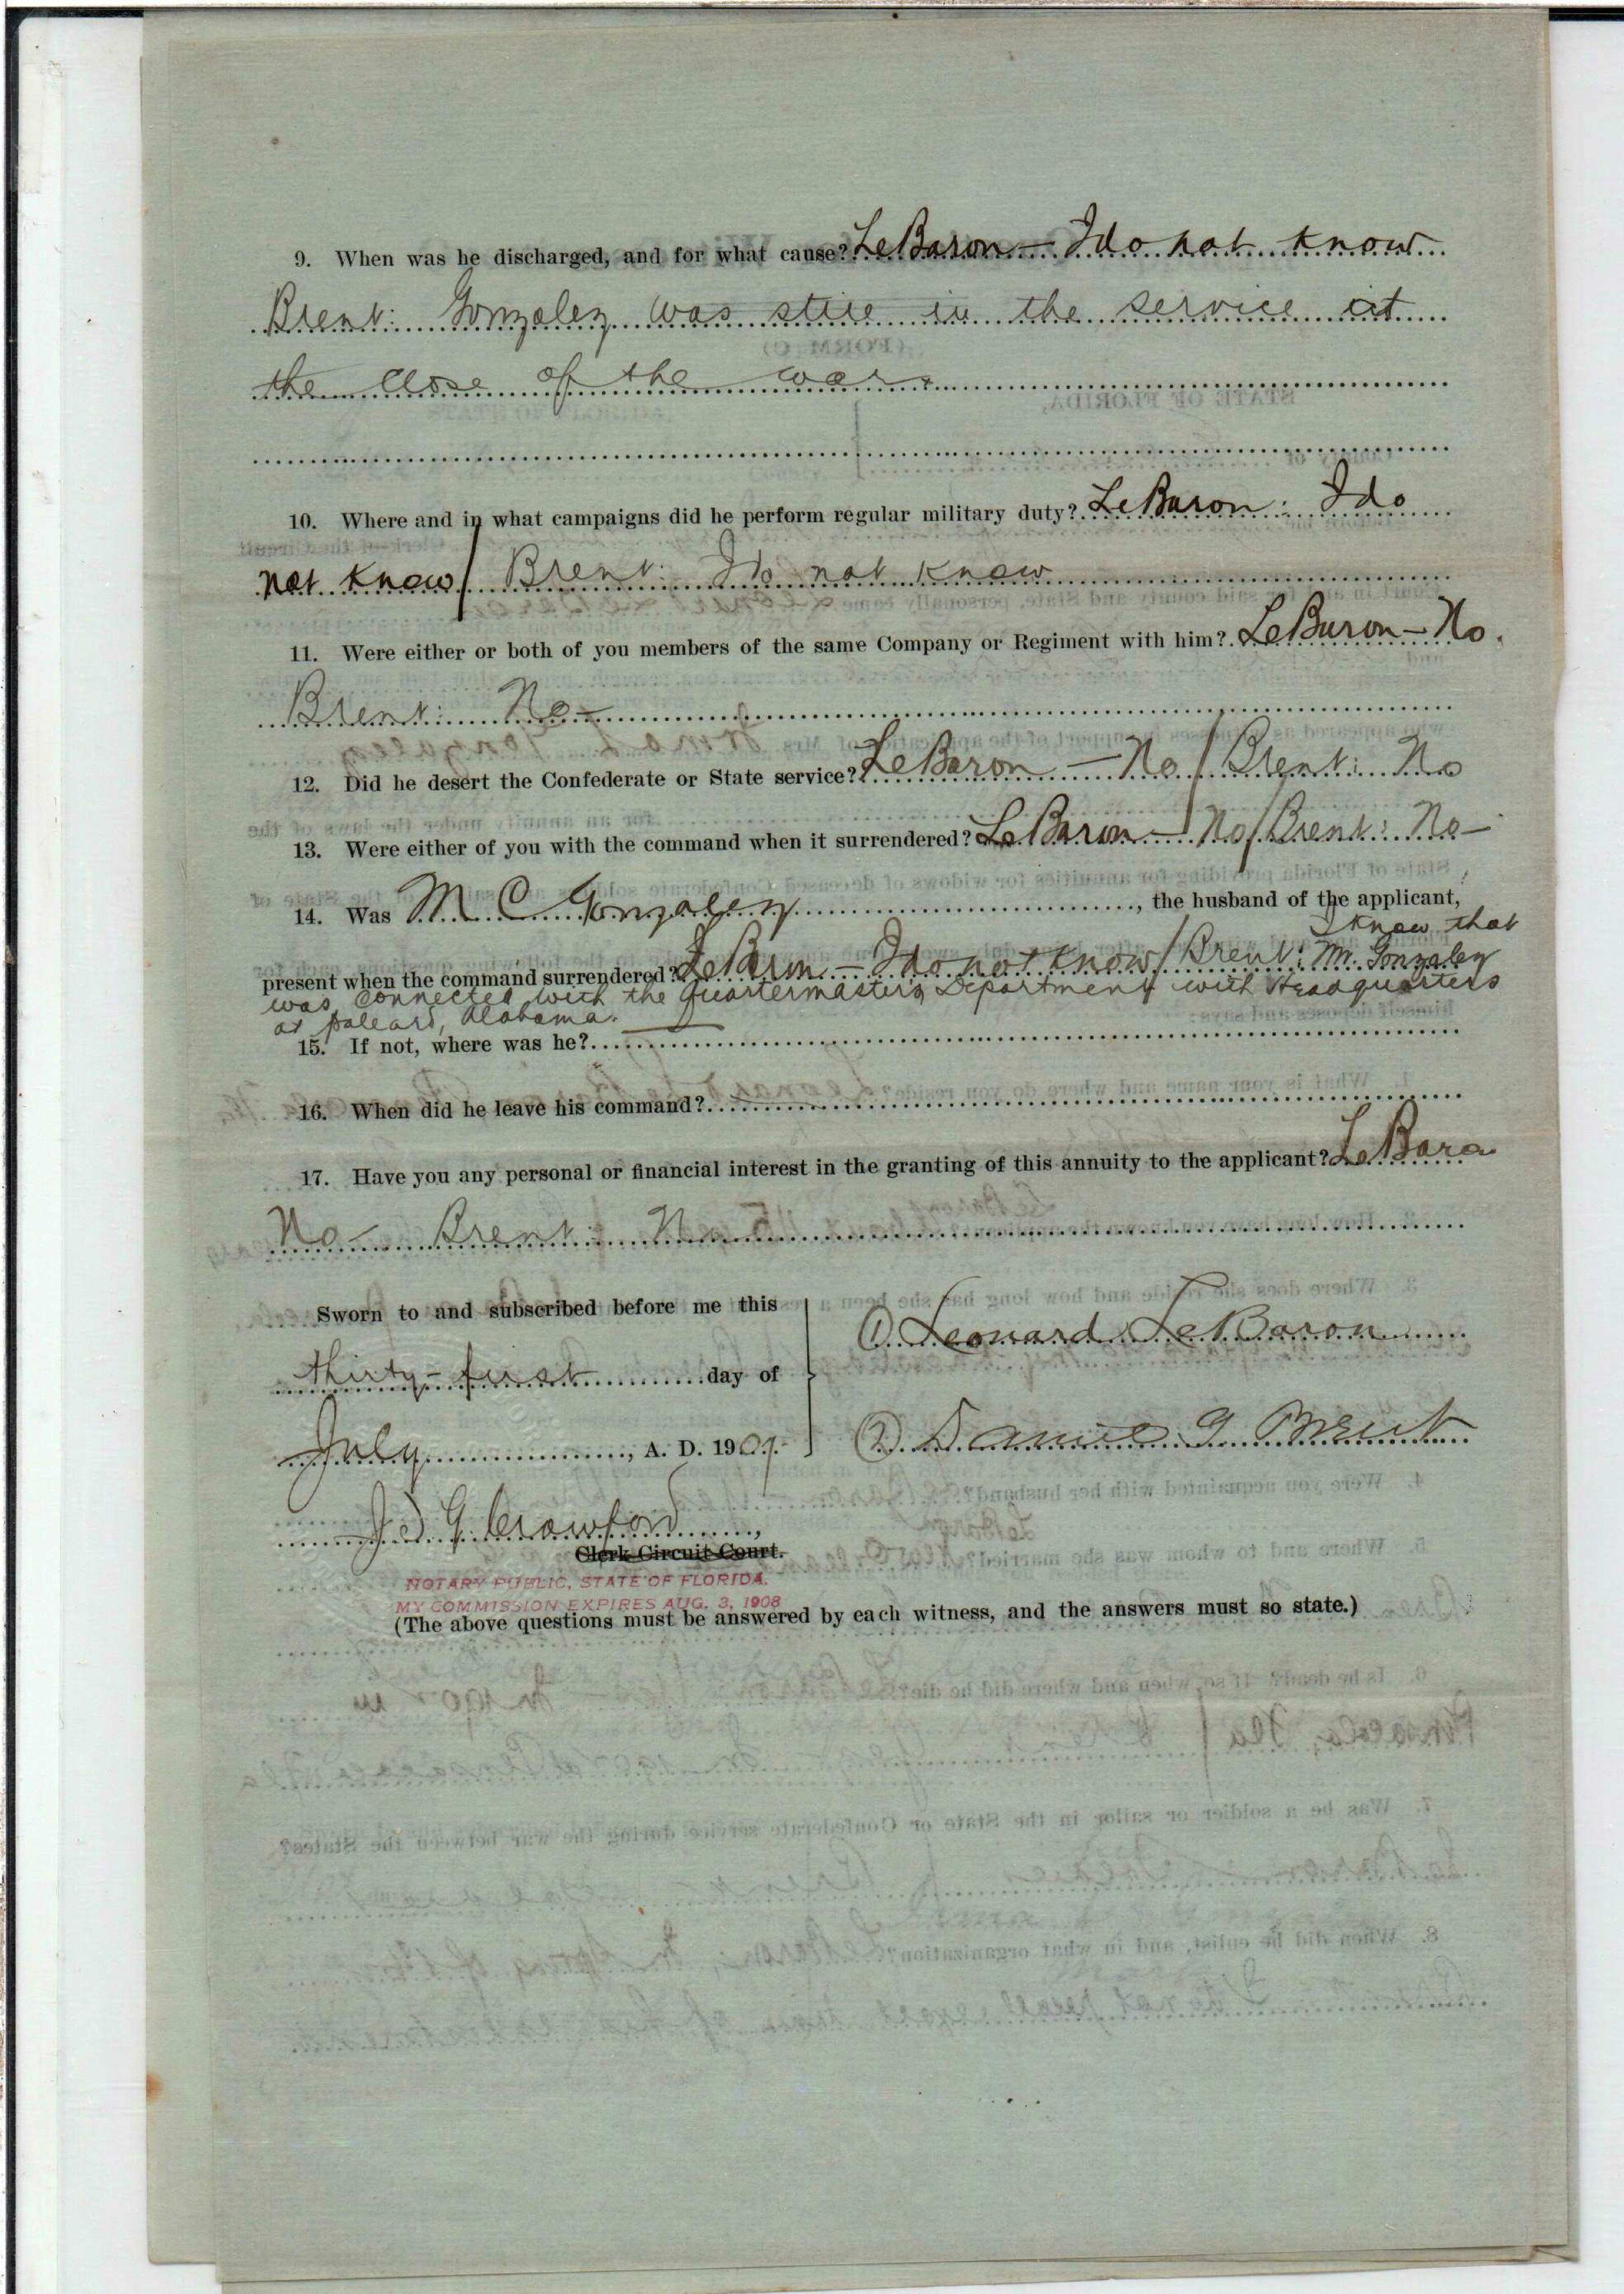 9. When was he discharged, and for what cause? LeBaron – I do not know
Brent: Gonzalez was still in the service at
the close of the war
10. Where and in what campaigns did he perform regular military duty? LeBaron: I do
not know / Brent: I do not know
11. Were either or both of you members of the same Company or Regiment with him? LeBaron – No.
Brent: No –
12. Did he desert the Confederate or State service? LeBaron – No / Brent: No
13. Were either of you with the command when it surrendered? LeBaron – No / Brent: No –
14. Was M C Gonzalez, the husband of the applicant,
I know that
present when the command surrendered? LeBaron – I do not know / Brent: M. Gonzalez
was connected with the Quartermasters Department with Headquarters
at Pollard, Alabama.
15. If not, where was he?
16. When did he leave his command?
17. Have you any personal or financial interest in the granting of this annuity to the applicant? LeBaron
No – Brent: No
Sworn to and subscribed before me this
(1) Leonard LeBaron
thirty-first day of
July, A. D. 1907.
(2) Daniel G Brent
J. G. Crawford,
Clerk Circuit Court.
NOTARY PUBLIC, STATE OF FLORIDA.
MY COMMISSION EXPIRES AUG. 3, 1908
(The above questions must be answered by each witness, and the answers must so state.)